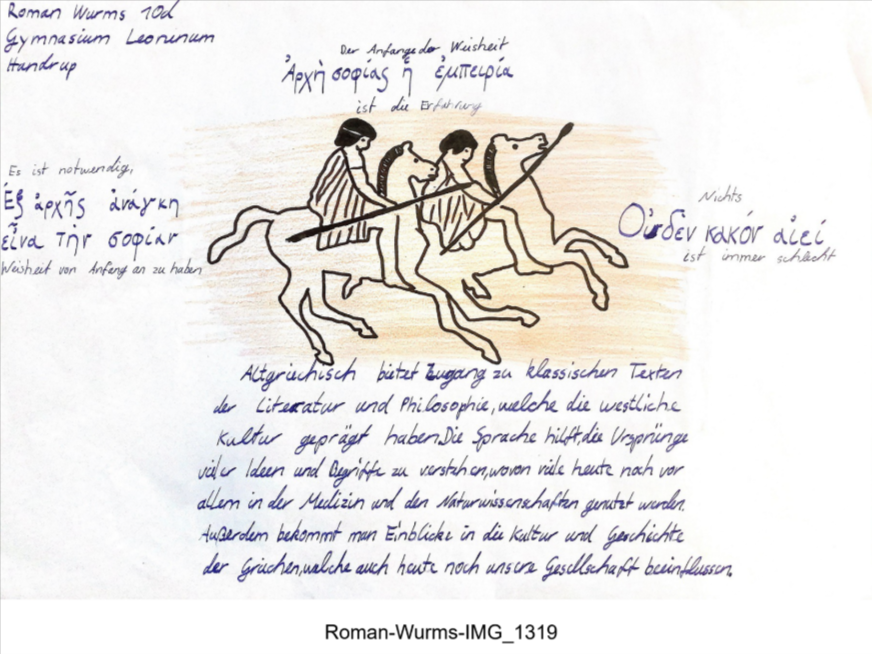 Roman Wurms 10d
Gymnasium Leoninum
Handrup
Der Anfang der Weisheit
Ἀρχὴ σοφίας ἡ ἐμπειρία
ist die Erfahrung
Es ist notwendig,
Ἐξ ἀρχῆς ἀνάγκη
εἶνα τὴν σοφίαν
Weisheit von Anfang an zu haben
Nichts
Οὐδὲν κακόν αἰεί
ist immer schlecht
Altgriechisch bietet Zugang zu klassischen Texten
der Literatur und Philosophie, welche die westliche
Kultur geprägt haben. Die Sprache hilft, die Ursprünge
vieler Ideen und Begriffe zu verstehen, wovon viele heute noch vor
allem in der Medizin und den Naturwissenschaften genutzt werden.
Außerdem bekommt man Einblicke in die Kultur und Geschichte
der Griechen, welche auch heute noch unsere Gesellschaft beeinflussen.
Roman-Wurms-IMG_1319